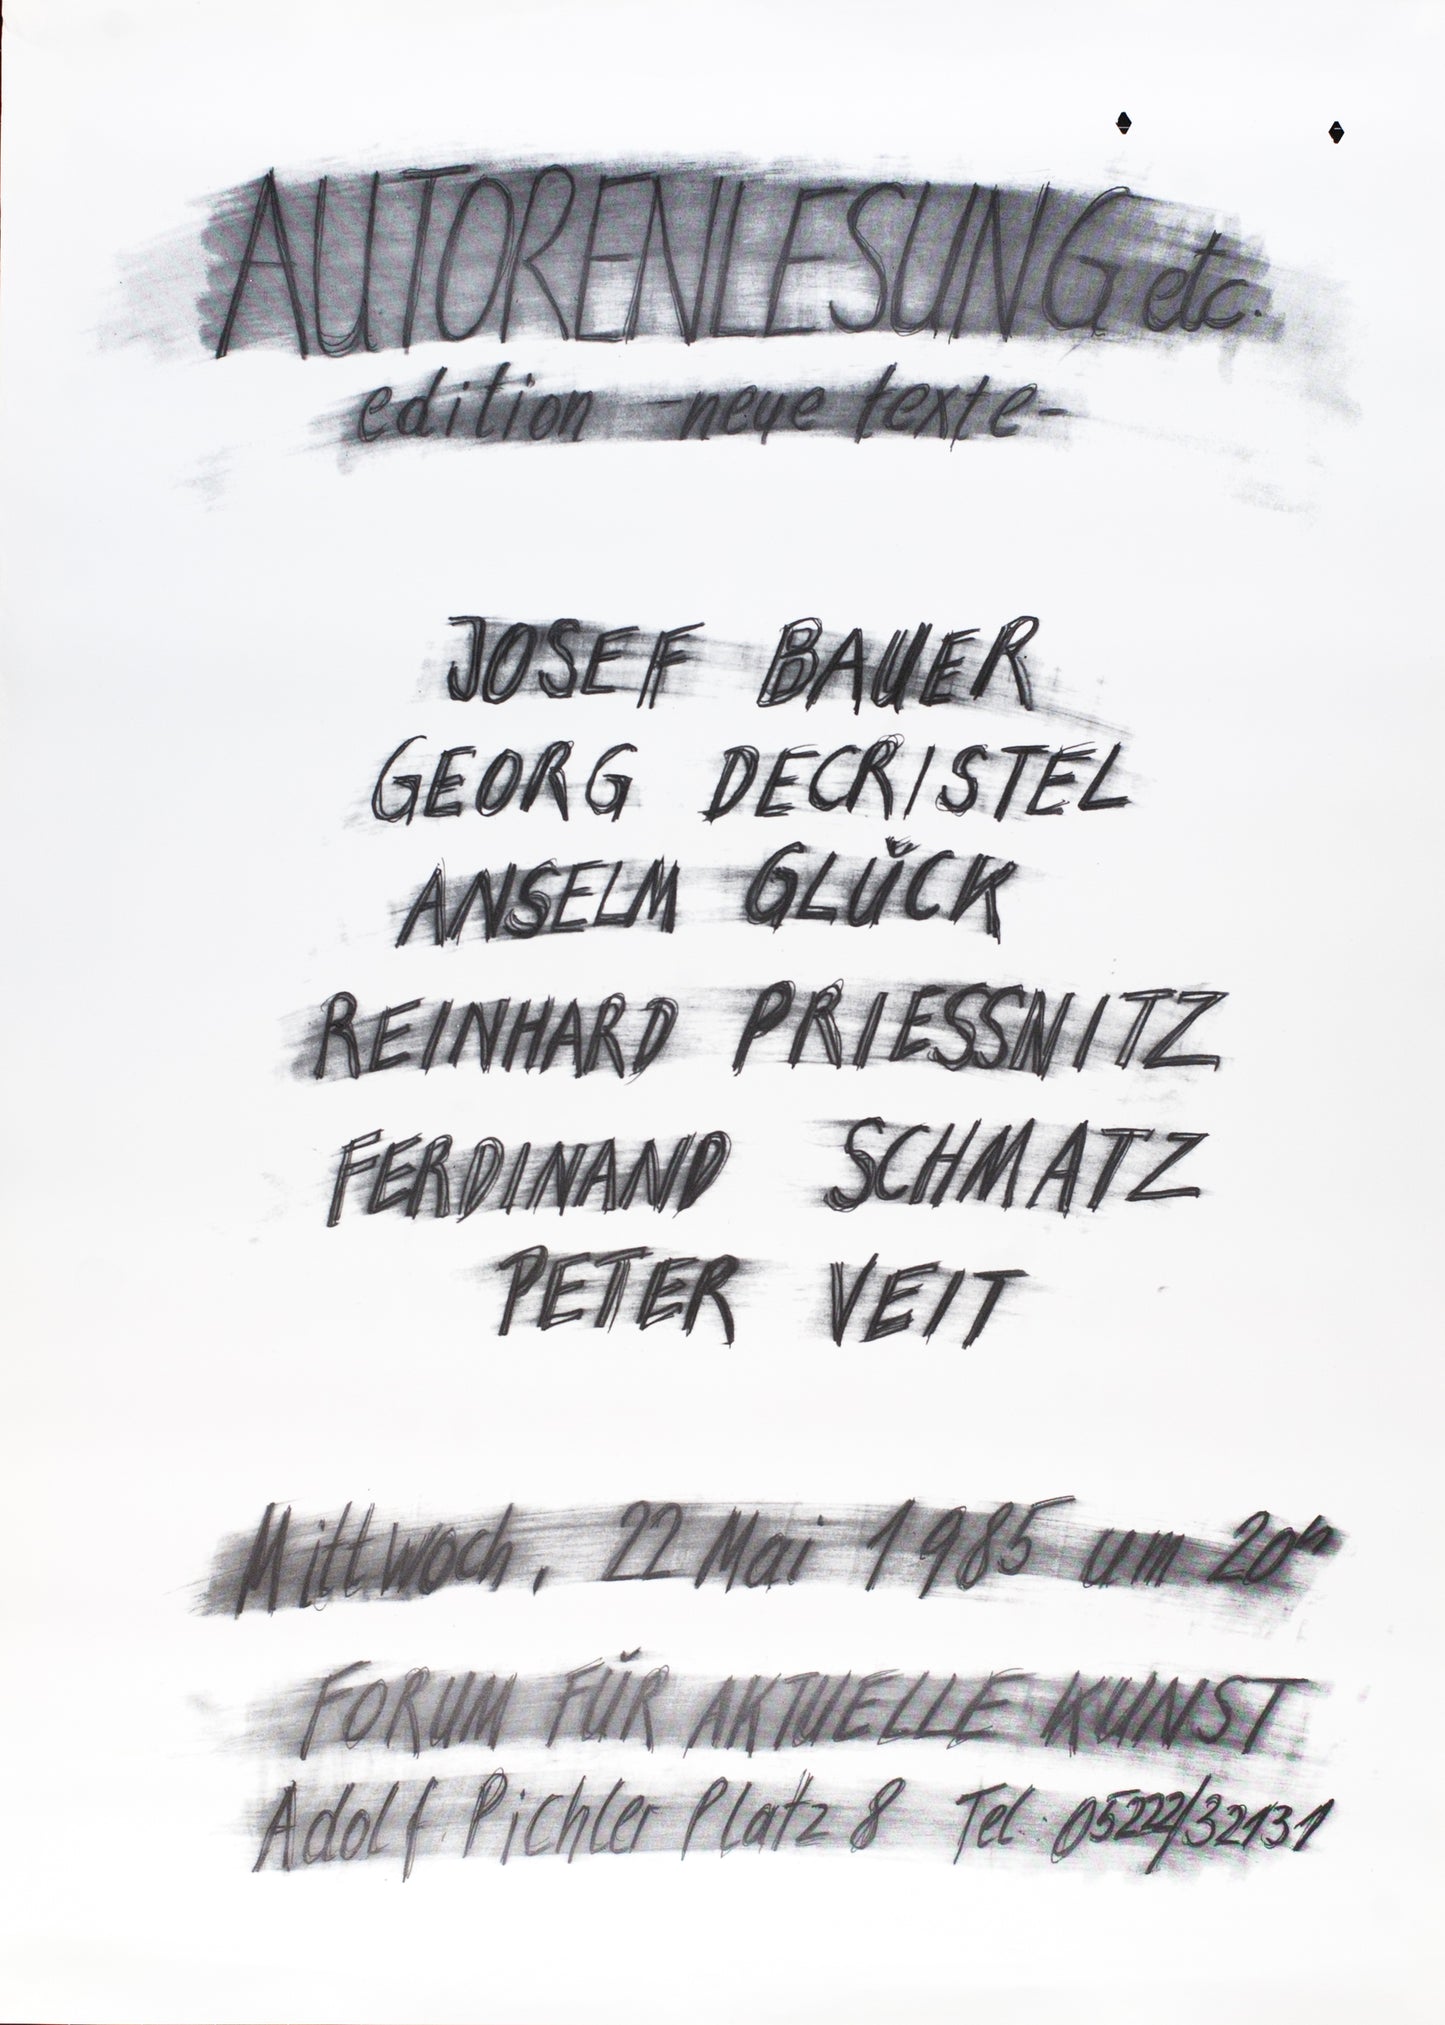 AUTORENLESUNG etc.
edition -neue texte-
JOSEF BAUER
GEORG DECRISTEL
ANSELM GLÜCK
REINHARD PRIESSNITZ
FERDINAND SCHMATZ
PETER VEIT
Mittwoch, 22 Mai 1985 um 20h
FORUM FÜR AKTUELLE KUNST
Adolf Pichler Platz 8 Tel: 05222/32131